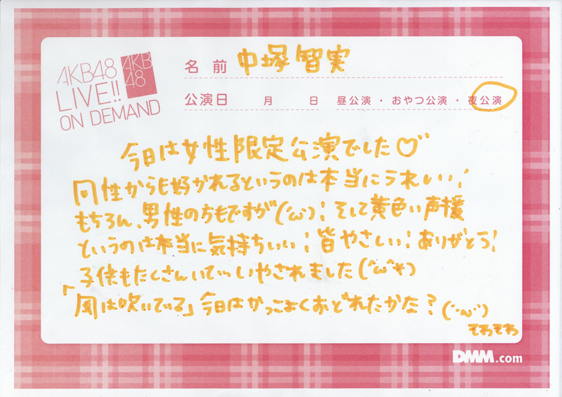 AKB48
LIVE!!
ON DEMAND
AKB
48
名前 中塚智実
公演日 月 日 昼公演・おやつ公演・夜公演
今日は女性限定公演でした♡
同性からも好かれるというのは本当にうれしい!
もちろん、男性の方もですが(´ω`)!そして黄色い声援
というのは本当に気持ちいい!皆やさしい!ありがとう!
子供もたくさんいていやされました(^ω^*)
「風は吹いている」今日はかっこよくおどれたかな?(･ω･)
そわそわ
DMM.com